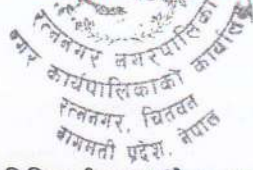 रत्ननगर नगरपालिका
नगर कार्यपालिकाको कार्यालय
रत्ननगर, चितवन
बागमती प्रदेश, नेपाल